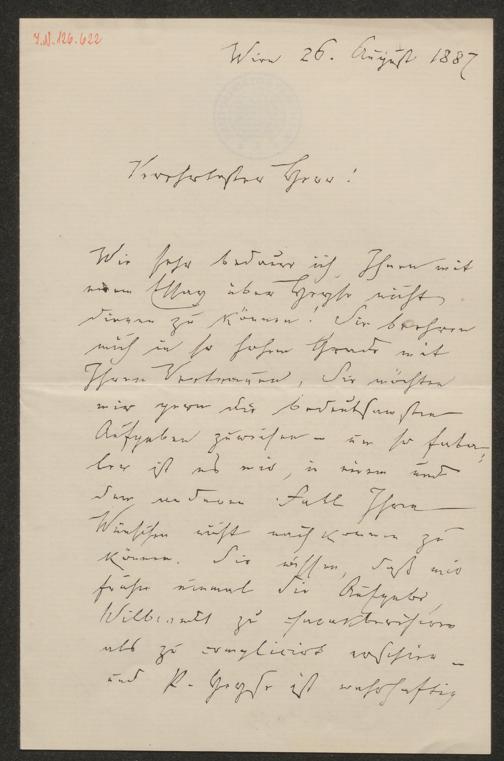 J.N. 126.622
Wien 26. August 1887
Verehrtester Herr!
Wie sehr bedaure ich Ihnen mit
einem Essay über Heyse nicht
dienen zu können! Sie beehren
mich in so hohem Grade mit
Ihrem Vertrauen, Sie möchten
mir gern die bedeutsamsten
Aufgaben zuweisen – um so fata-
ler ist es mir, in einem und
dem anderen Fall Ihren
Wünschen nicht nachkommen zu
können. Sie wissen, daß mir
früher einmal die Aufgabe,
Wilbrandt zu charakterisiren
als zu complicirt erschien –
und P. Heyse ist wahrhaftig